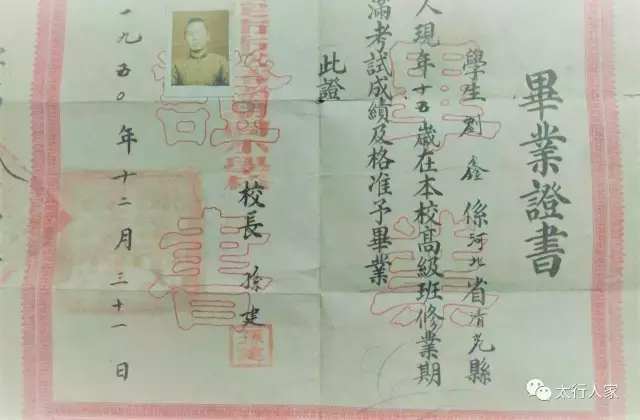 畢業證書
學生劉鑫係河北省清苑縣
人現年十五歲在本校高級班修業期
滿考試成績及格准予畢業
此證
校長 孫建
一九五〇年十二月三十一日
太行人家